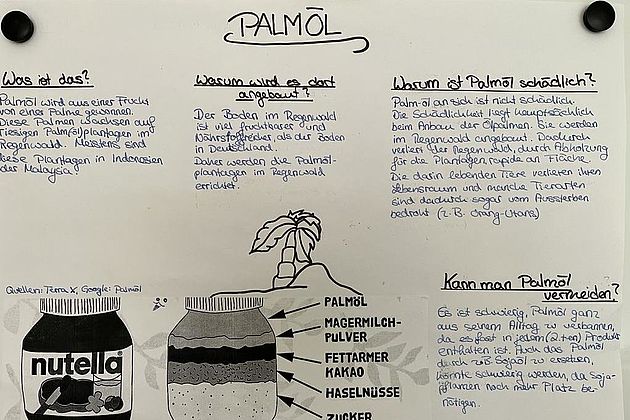 PALMÖL
Was ist das?
Palmöl wird aus einer Frucht
von einer Palme gewonnen.
Diese Palmen wachsen auf
riesigen Palm(öl)plantagen im
Regenwald. Meistens sind
diese Plantagen in Indonesien
oder Malaysia
Warum wird es dort
angebaut?
Der Boden im Regenwald
ist viel fruchtbarer und
Nährstoffreicher, als der Boden
in Deutschland.
Daher werden die Palmöl-
plantagen im Regenwald
errichtet.
Warum ist Palmöl schädlich?
Palm-öl an sich ist nicht schädlich.
Die Schädlichkeit liegt hauptsächlich
beim Anbau der Ölpalmen. Sie werden
im Regenwald angebaut. Dadurch
verliert der Regenwald, durch Abholzung
für die Plantagen, rapide an Fläche.
Die darin lebenden Tiere verlieren ihren
Lebensraum und manche Tierarten
sind dadurch sogar vom Aussterben
bedroht (z.B. Orang-Utans)
Kann man Palmöl
vermeiden?
Es ist schwierig, Palmöl ganz
aus seinem Alltag zu verbannen,
da es fast in jedem (2.ten) Produkt
enthalten ist. Auch das Palmöl
durch Sojaöl zu ersetzen,
könnte schwierig werden, da Soja-
pflanzen noch mehr Platz be-
nötigen.
Quellen: Terra X, Google: Palmöl
nutella
PALMÖL
MAGERMILCH-
PULVER
FETTARMER
KAKAO
HASELNÜSSE
ZUCKER